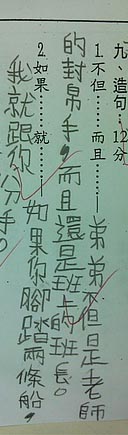 九、造句：12分
1.不但……而且……──弟弟不但是老師
的幫手，而且還是班上的班長。
2.如果……就……──如果你腳踏兩條船，
我就跟你分手。